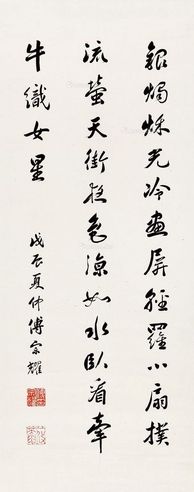 銀燭秋光冷畫屏輕羅小扇撲
流螢天街夜色涼如水臥看牽
牛織女星
戊辰夏仲傅宗耀